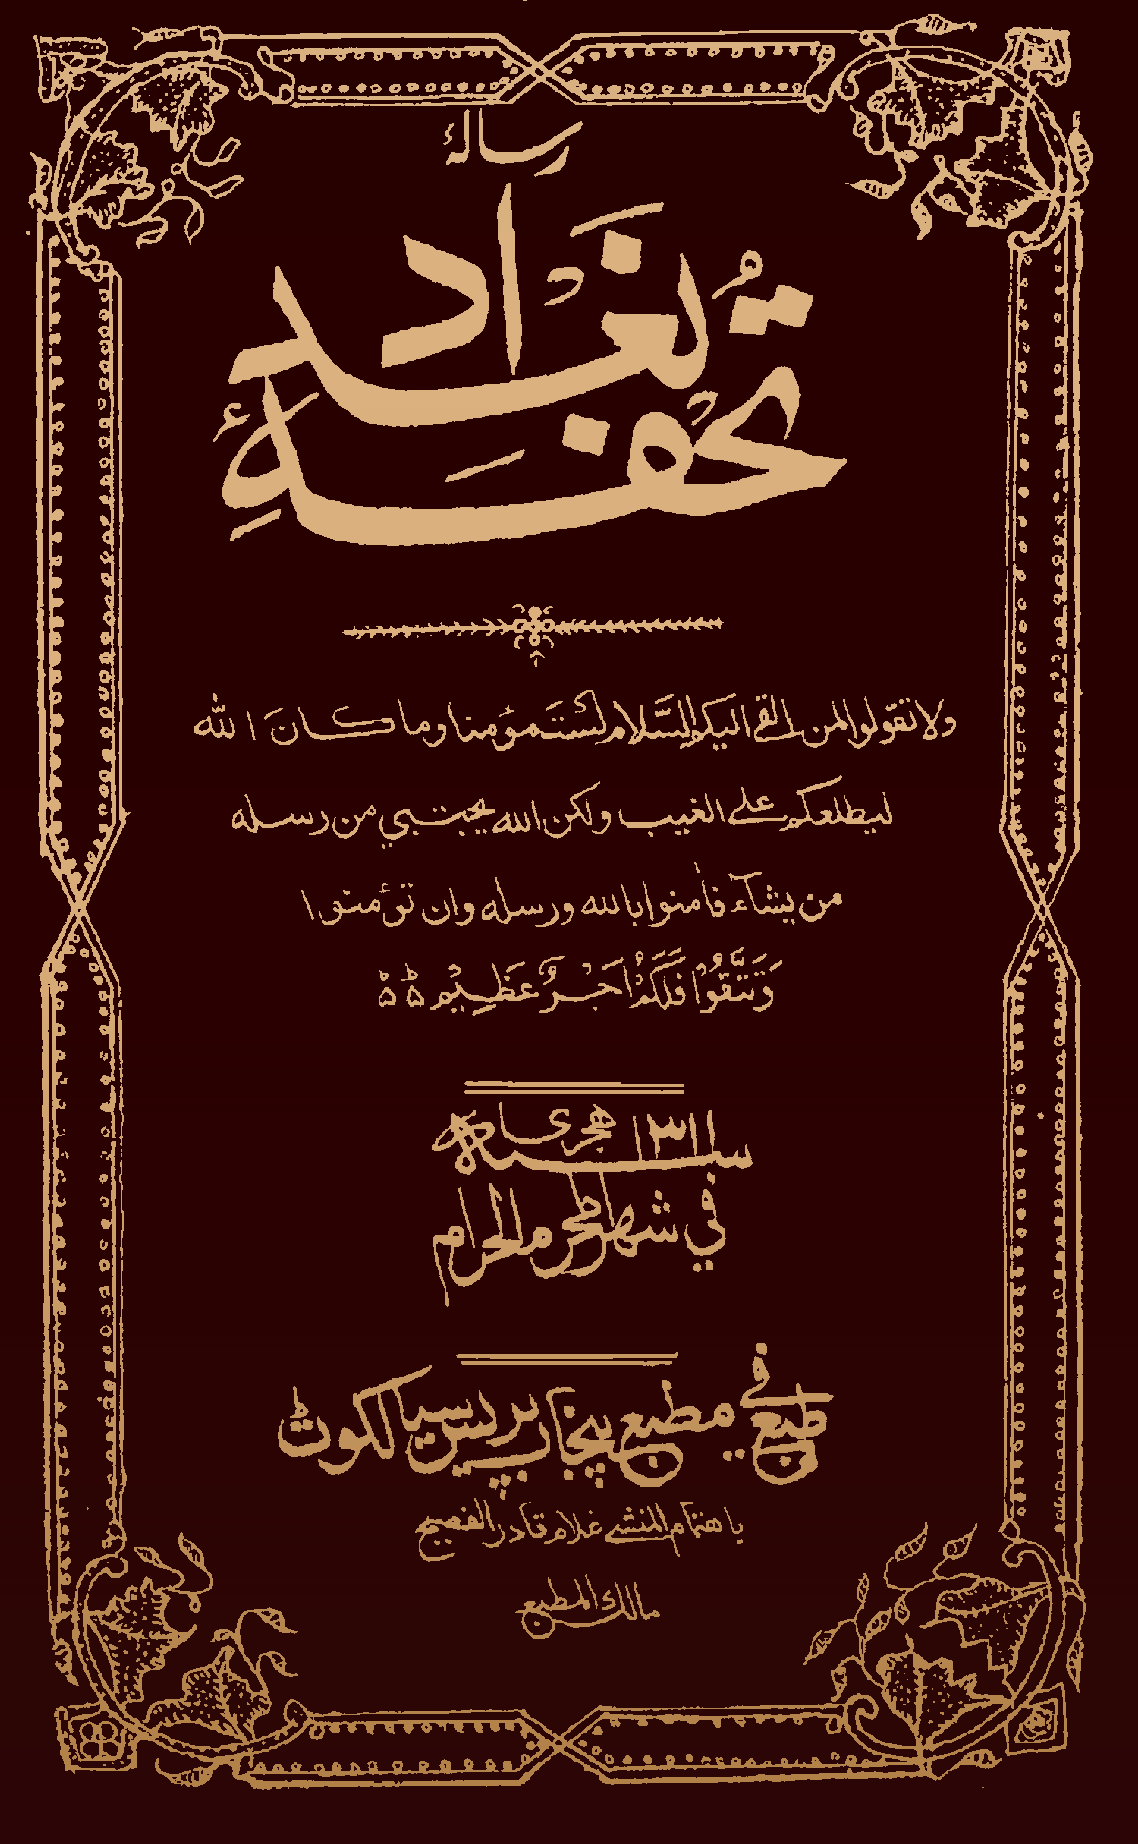 رسالهٔ
تحفهٔ بُغداد
ولا تقولوا لمن القى اليكم السّلام لَسْتَ مؤمنا وما كانَ الله
ليطلعكم على الغيب ولكن الله يجتبي من رسله
من يشآء فأمنوا بالله ورسله وان تؤمنوا
وَتَتَّقُوْا فَلَكُمْ اَجْرٌ عَظِيْم
سنة ١٣١١ هجرى
في شهر المحرم الحرام
طبع في مطبع پنجاب پريس سيالكوٹ
باهتمام المنشى غلام قادر الفصيح
مالك المطبع